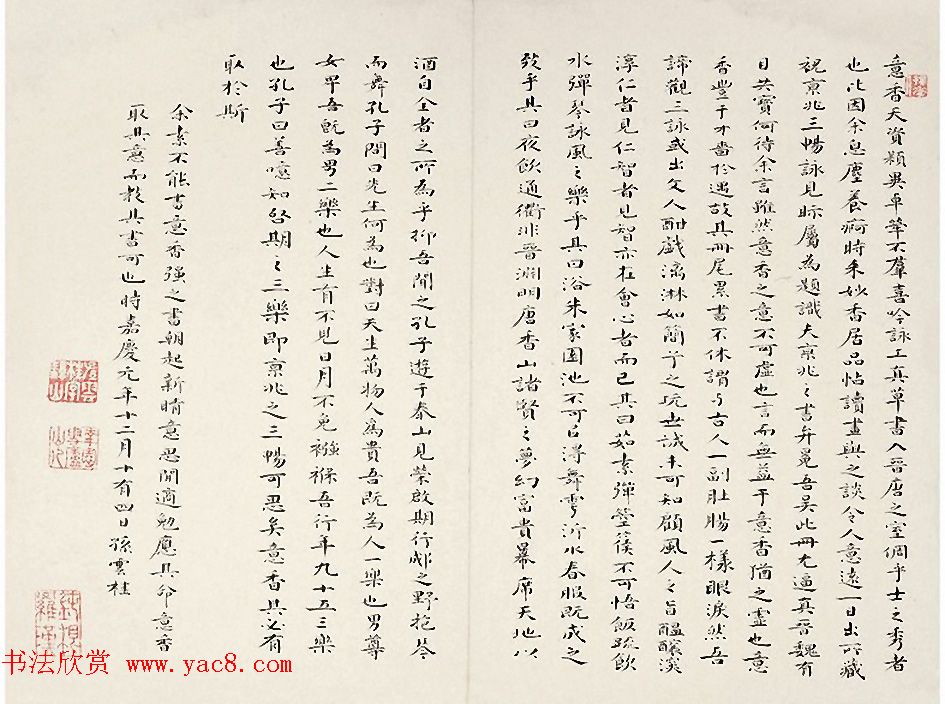 意香天資穎異卓犖不羣喜吟詠工真草書入晉唐之室倜乎士之秀者
也比因余息塵養疴時来妙香居品帖讀畫與之談令人意遠一日出所藏
祝京兆三暢詠見眎屬為題識夫京兆之書弁冕吾吴此冊尤逼真晉魏有
目共寳何待余言雖然意香之意不可虛也言而無益于意香猶之虛也意
香豐于才嗇於遇故其冊尾累書不休謂与古人一副肚腸一樣眼淚然吾
諦觀三詠或出文人酣戯漓淋如簡子之玩世誠未可知顧風人之旨醖釀溪
淳仁者見仁智者見智亦在會心者而已其曰茹素彈箜篌不可悟飯疏飲
水彈琴詠風之樂乎其曰浴朱家園池不可占溥舞雩沂水春服既成之
致乎其曰夜飲通衢非晉淵明唐香山諸賢之夢幻富貴幕席天地以
酒自全者之所為乎抑吾聞之孔子遊于泰山見榮啟期行郕之野抱琴
而舞孔子問曰先生何為也對曰天生萬物人為貴吾既為人一樂也男尊
女卑吾旣為男二樂也人生有不見日月不免襁褓吾行年九十五三樂
也孔子曰善噫知啓期之三樂即京兆之三暢可忍矣意香其必有
取於斯
余素不能書意香强之書朝起新晴意思閒適勉應其命意香
取其意而教其書可也時嘉慶元年十二月十有四日孫雲桂
书法欣赏 www.yac8.com